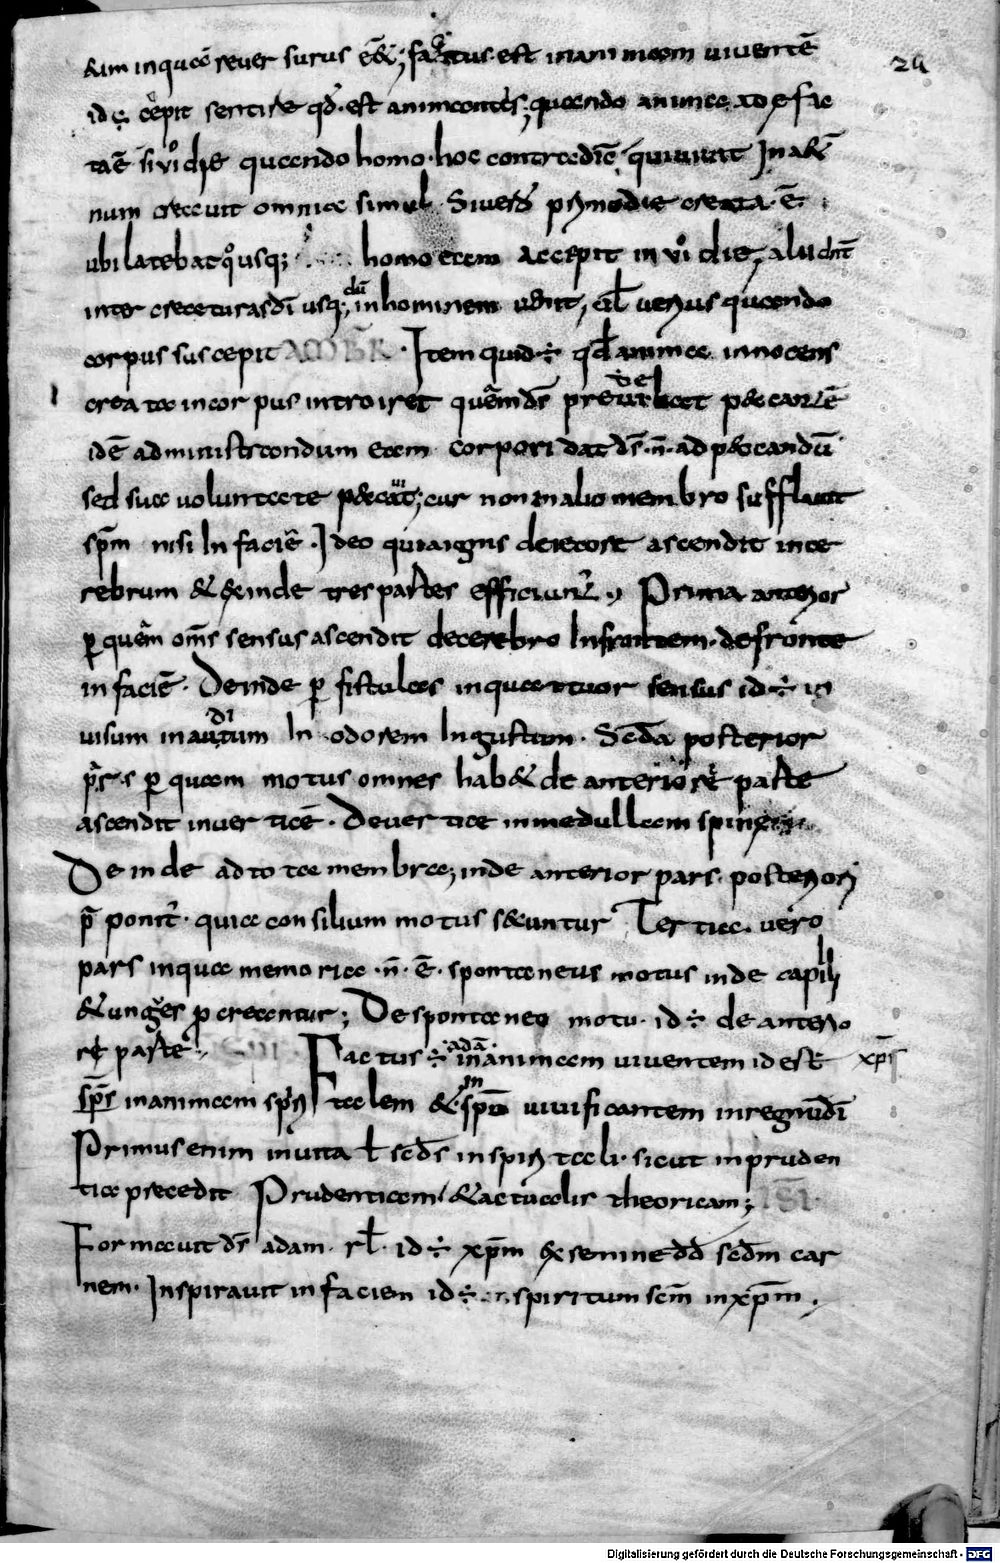 24
&iam inqua reuersurus e&; factus est inanimam uiuente
ide cepit sentire qd est animantes; quando anima ade fac
tae si uio die quando homo hoc contradie quiuiuit In aeter
num creauit omnia simul Siuero primo die creata e
ubi latebat quousq; homo eam accepit in ui die, alii dnt
inter creaturas di usq; du in hominem uenit, al uerius quando
corpus suscepit AMBR Item quid ÷ qd anima innocens
creata incorpus introiret quam ds pre uidebat peccare
ide administrandum eam corpori dat ds n ad peccandu
sed sua uoluntate peccauit; cur non inalio membro sufflauit
spm nisi In facie Ideo quia ignis deiecore ascendit ince
rebrum & exinde tres partes efficiunt Prima anterior
p quem oms sensus ascendit decerebro Infrontem defronte
in facie Deinde p fistulas inquattuor sensus id ÷ in
uisum in auditum In odorem In gustum Scda posterior
prs p quam motus omnes hab& de anteriore parte
ascendit inuertice Deuertice inmedullam spine
Deinde ad tota membra; inde anterior pars posteriori
p ponit quia consilium motus secuntur Tertia uero
pars inqua memoria n e spontaneus motus inde capilli
& unges p creantur; Despontaneo motu id ÷ de anterio
re parte Factus ÷ adam inanimam uiuentem id est xps
sps inanimam spiri talem & in spm uiuificantem inregnudi
Primus enim inuita t scds inspiri tali sicut inpruden
tia precedit Prudentiam & actualis theoricam; ISI
Formauit ds adam rl id ÷ xpm exsemine dd scdm car
nem Inspirauit in faciem id ÷ spiritum scm inxpm
Digitalisierung gefördert durch die Deutsche Forschungsgemeinschaft - DFG